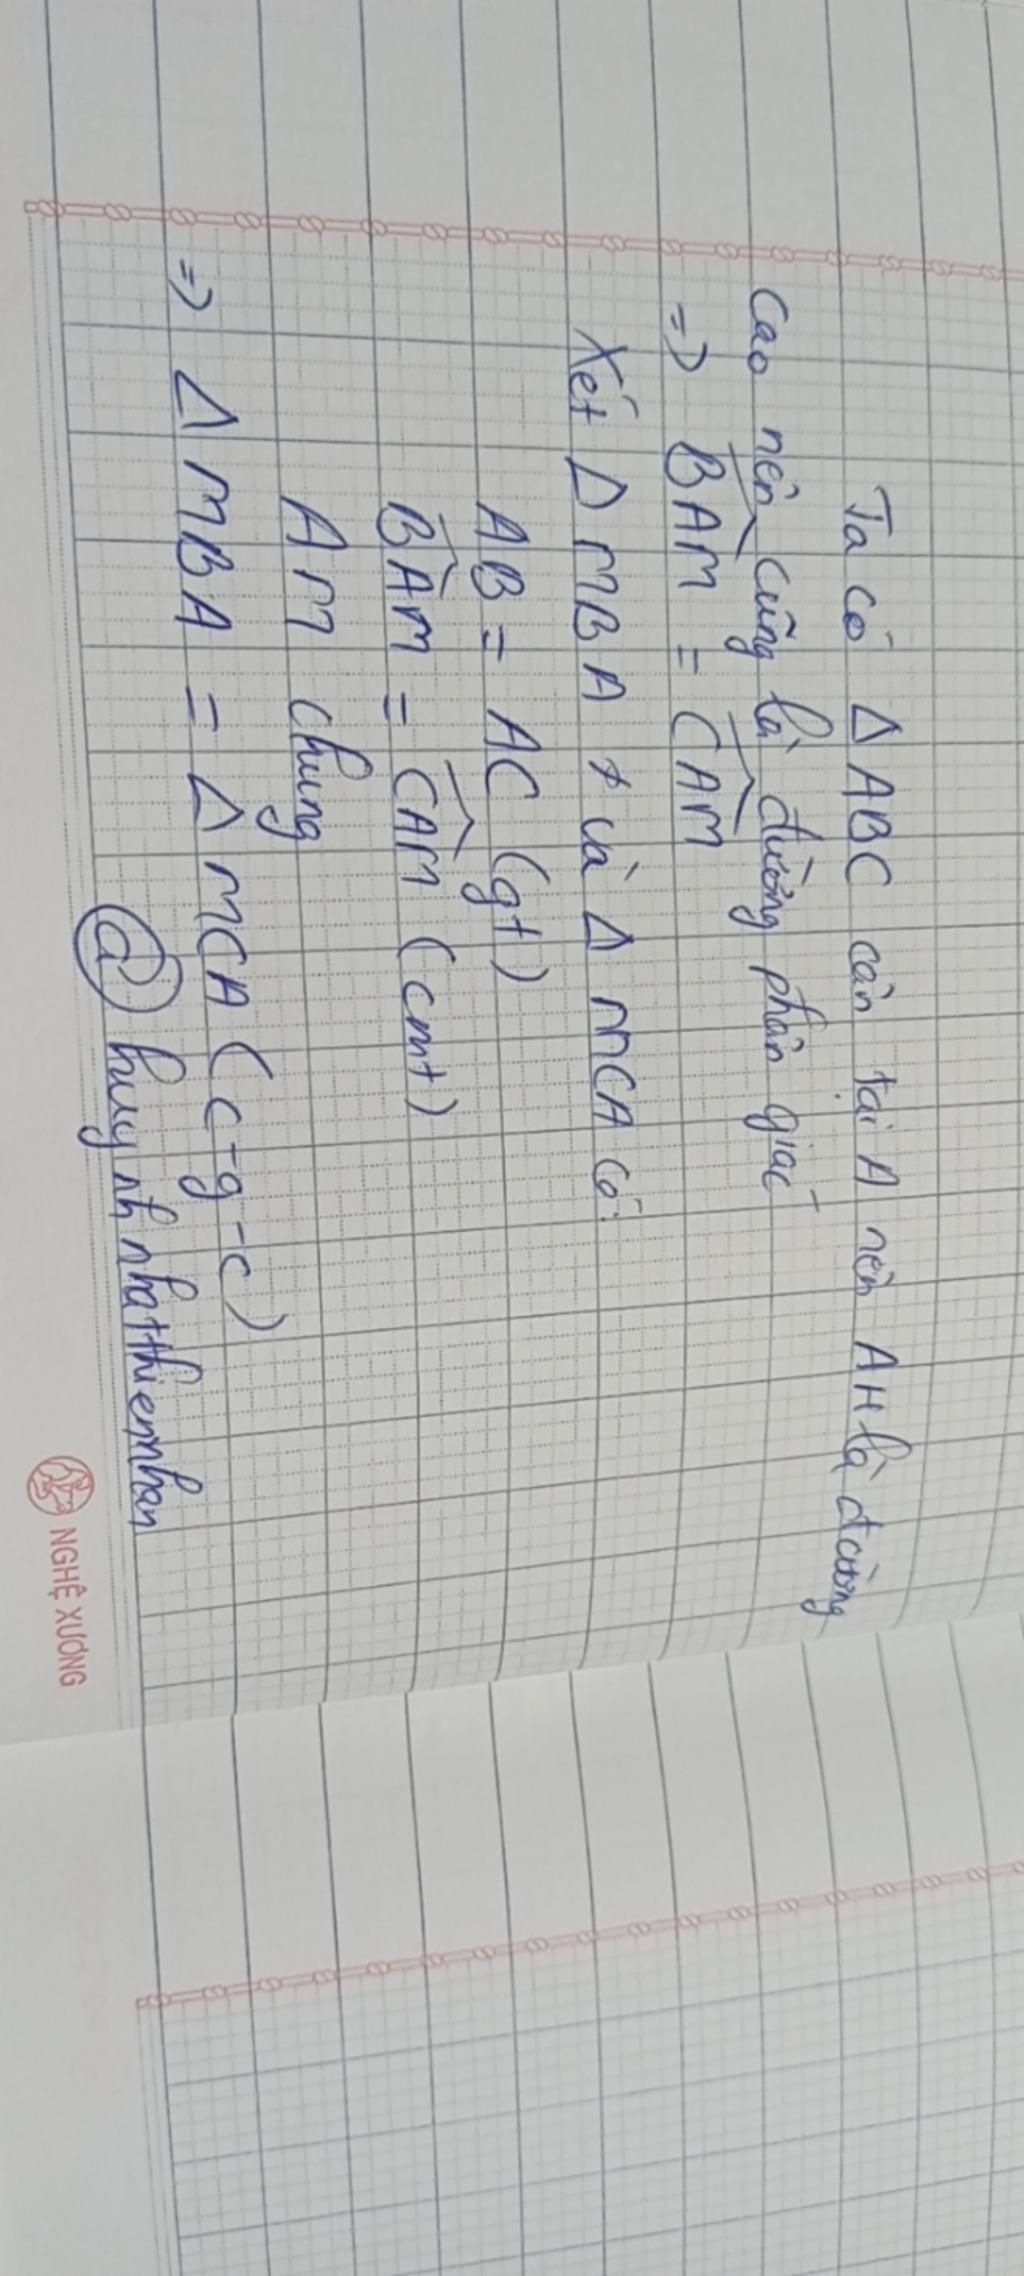 Ta có Δ ABC cân tại A nên AH là đường
cao nên cũng là đường phân giác
=> BAM = CAM
Xét Δ MBA và Δ MCA có:
AB = AC (gt)
BAM = CAM (cmt)
AM chung
=> Δ MBA = Δ MCA (c-g-c)
@ huynhnhatthiennhan
NGHỆ XƯƠNG